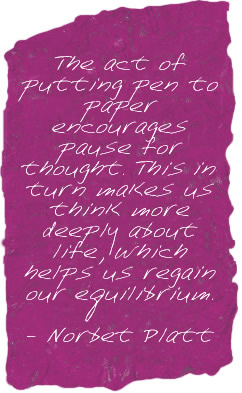 The act of
putting pen to
paper
encourages
pause for
thought. This in
turn makes us
think more
deeply about
life, which
helps us regain
our equilibrium.
- Norbet Platt